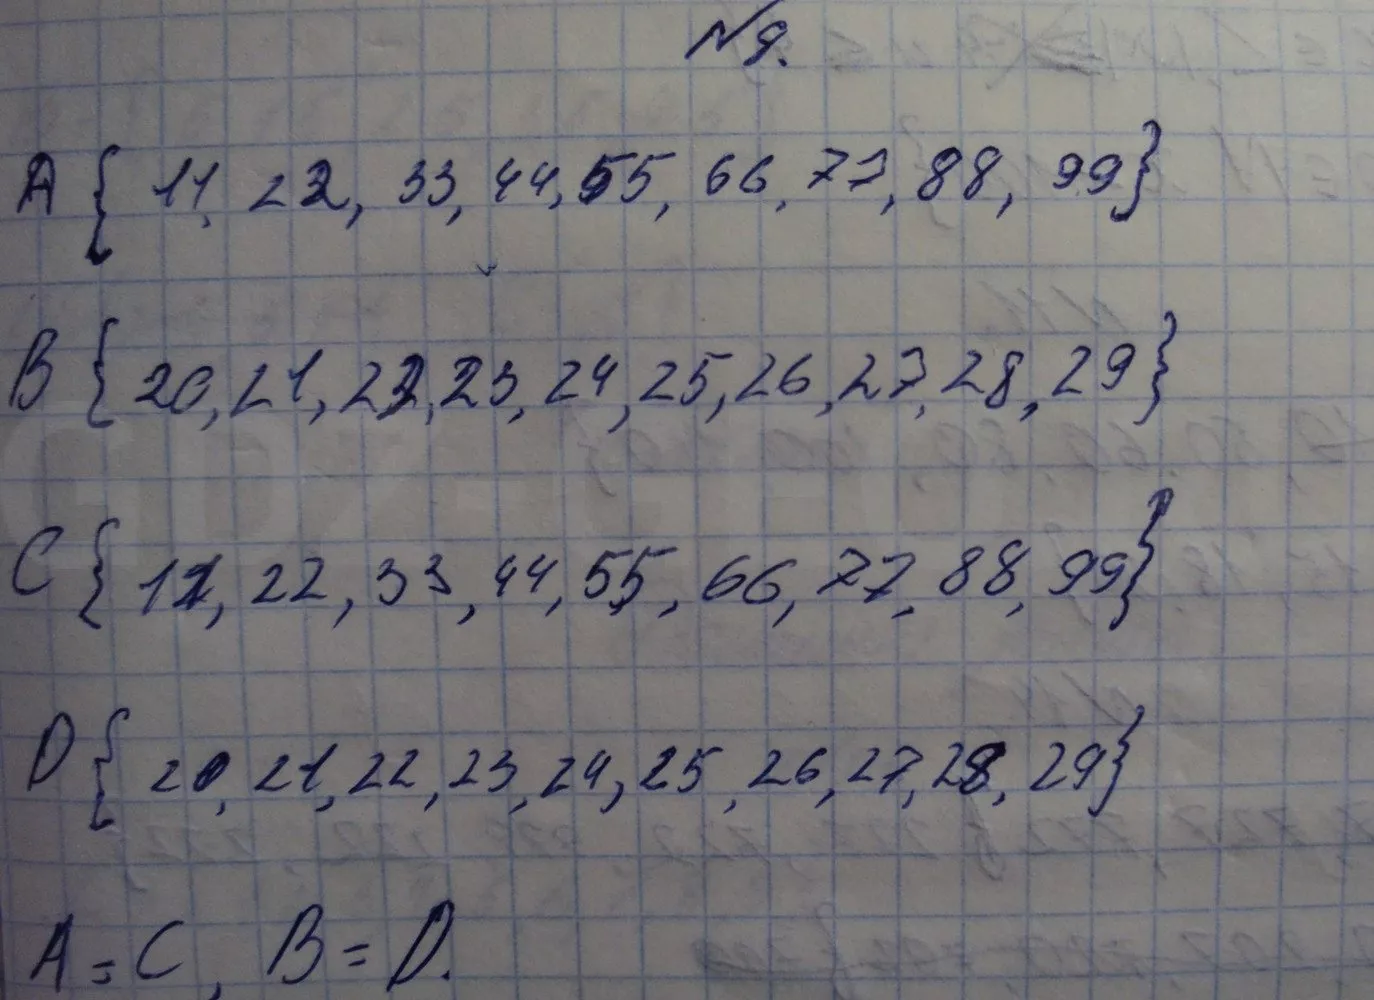 №9.
A { 11, 22, 33, 44, 55, 66, 77, 88, 99}
B { 20, 21, 22, 23, 24, 25, 26, 27, 28, 29}
C { 11, 22, 33, 44, 55, 66, 77, 88, 99}
D { 20, 21, 22, 23, 24, 25, 26, 27, 28, 29}
A = C, B = D.